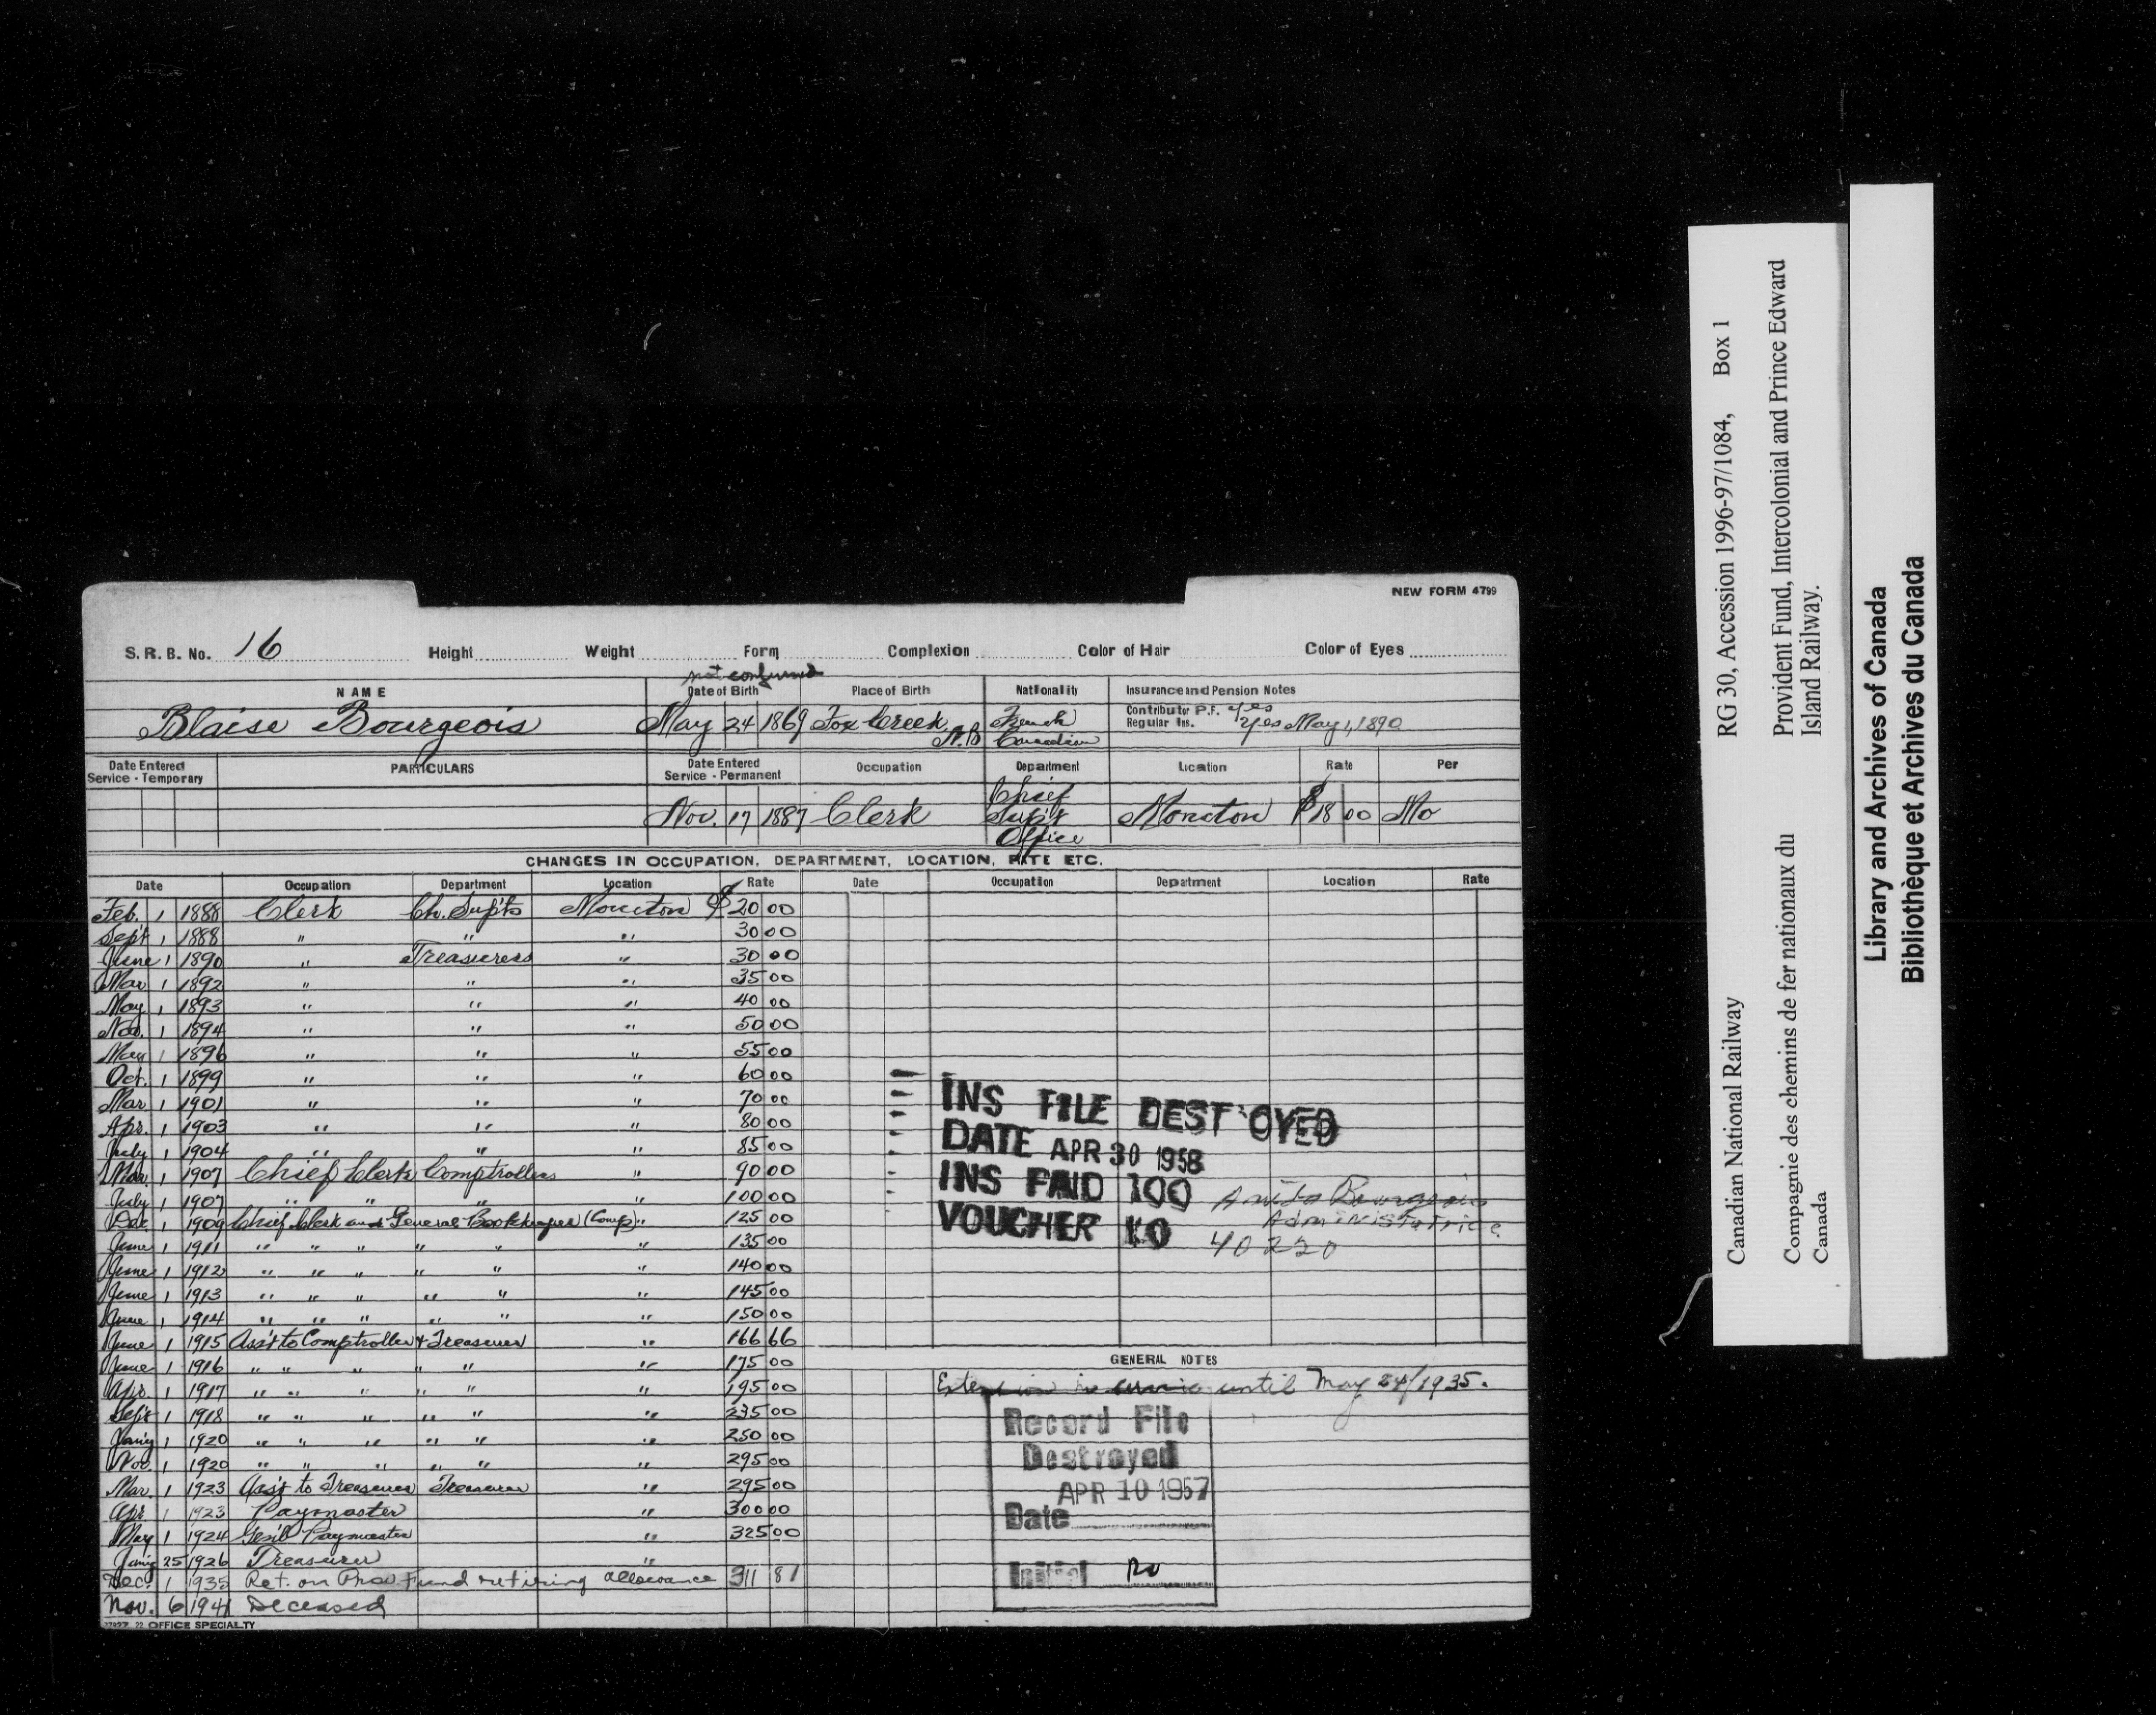 NEW FORM 4799
S. R. B. No. 16 Height Weight Form Complexion Color of Hair Color of Eyes
not confirmed
NAME Date of Birth Place of Birth Nationality Insurance and Pension Notes
Contributor P.F. yes
Blaise Bourgeois May 24 1869 Fox Creek N.B French Canadian Regular Ins. yes May 1, 1890
Date Entered Service - Temporary PARTICULARS Date Entered Service - Permanent Occupation Department Location Rate Per
Nov. 17 1887 Clerk Chief Supt's Office Moncton $18 00 Mo
CHANGES IN OCCUPATION, DEPARTMENT, LOCATION, RATE ETC.
Date Occupation Department Location Rate Date Occupation Department Location Rate
Feb. 1 1888 Clerk Ch. Supt's Moncton $ 20 00
Sept 1 1888 " " " 30 00
June 1 1890 " Treasurers " 30 00
Mar 1 1892 " " " 35 00
May 1 1893 " " " 40 00
Nov. 1 1894 " " " 50 00
May 1 1896 " " " 55 00
Oct. 1 1899 " " " 60 00
Mar 1 1901 " " " 70 00
Apr. 1 1903 " " " 80 00
July 1 1904 " " " 85 00
Mar. 1 1907 Chief Clerk Comptrollers " 90 00
July 1 1907 " " " " 100 00
Dec. 1 1909 Chief Clerk and General Bookkeeper (Comp) " 125 00
June 1 1911 " " " " " " 135 00
June 1 1912 " " " " " " 140 00
June 1 1913 " " " " " " 145 00
June 1 1914 " " " " " " 150 00
June 1 1915 Ass't to Comptroller & Treasurer " 166 66
June 1 1916 " " " " " " 175 00
Apr. 1 1917 " " " " " " 195 00
Sept 1 1918 " " " " " " 235 00
Jan'y 1 1920 " " " " " " 250 00
Nov. 1 1920 " " " " " " 295 00
Mar. 1 1923 Ass't to Treasurer Treasurer " 295 00
Apr. 1 1923 Paymaster " 300 00
May 1 1924 Gen'l Paymaster " 325 00
Jan'y 25 1926 Treasurer "
Dec. 1 1935 Ret. on Prov. Fund retiring allowance 311 81
Nov. 6 1941 Deceased
OFFICE SPECIALTY
INS FILE DEST OYED
DATE APR 30 1958
INS PAID 100 Anita Bourgeois
Administratrice
VOUCHER NO 40220
GENERAL NOTES
Extension in service until May 24/1935.
Record File
Destroyed
APR 10 1957
Date
Initial
Canadian National Railway RG 30, Accession 1996-97/1084, Box 1
Compagnie des chemins de fer nationaux du Canada
Provident Fund, Intercolonial and Prince Edward Island Railway.
Library and Archives of Canada
Bibliothèque et Archives du Canada